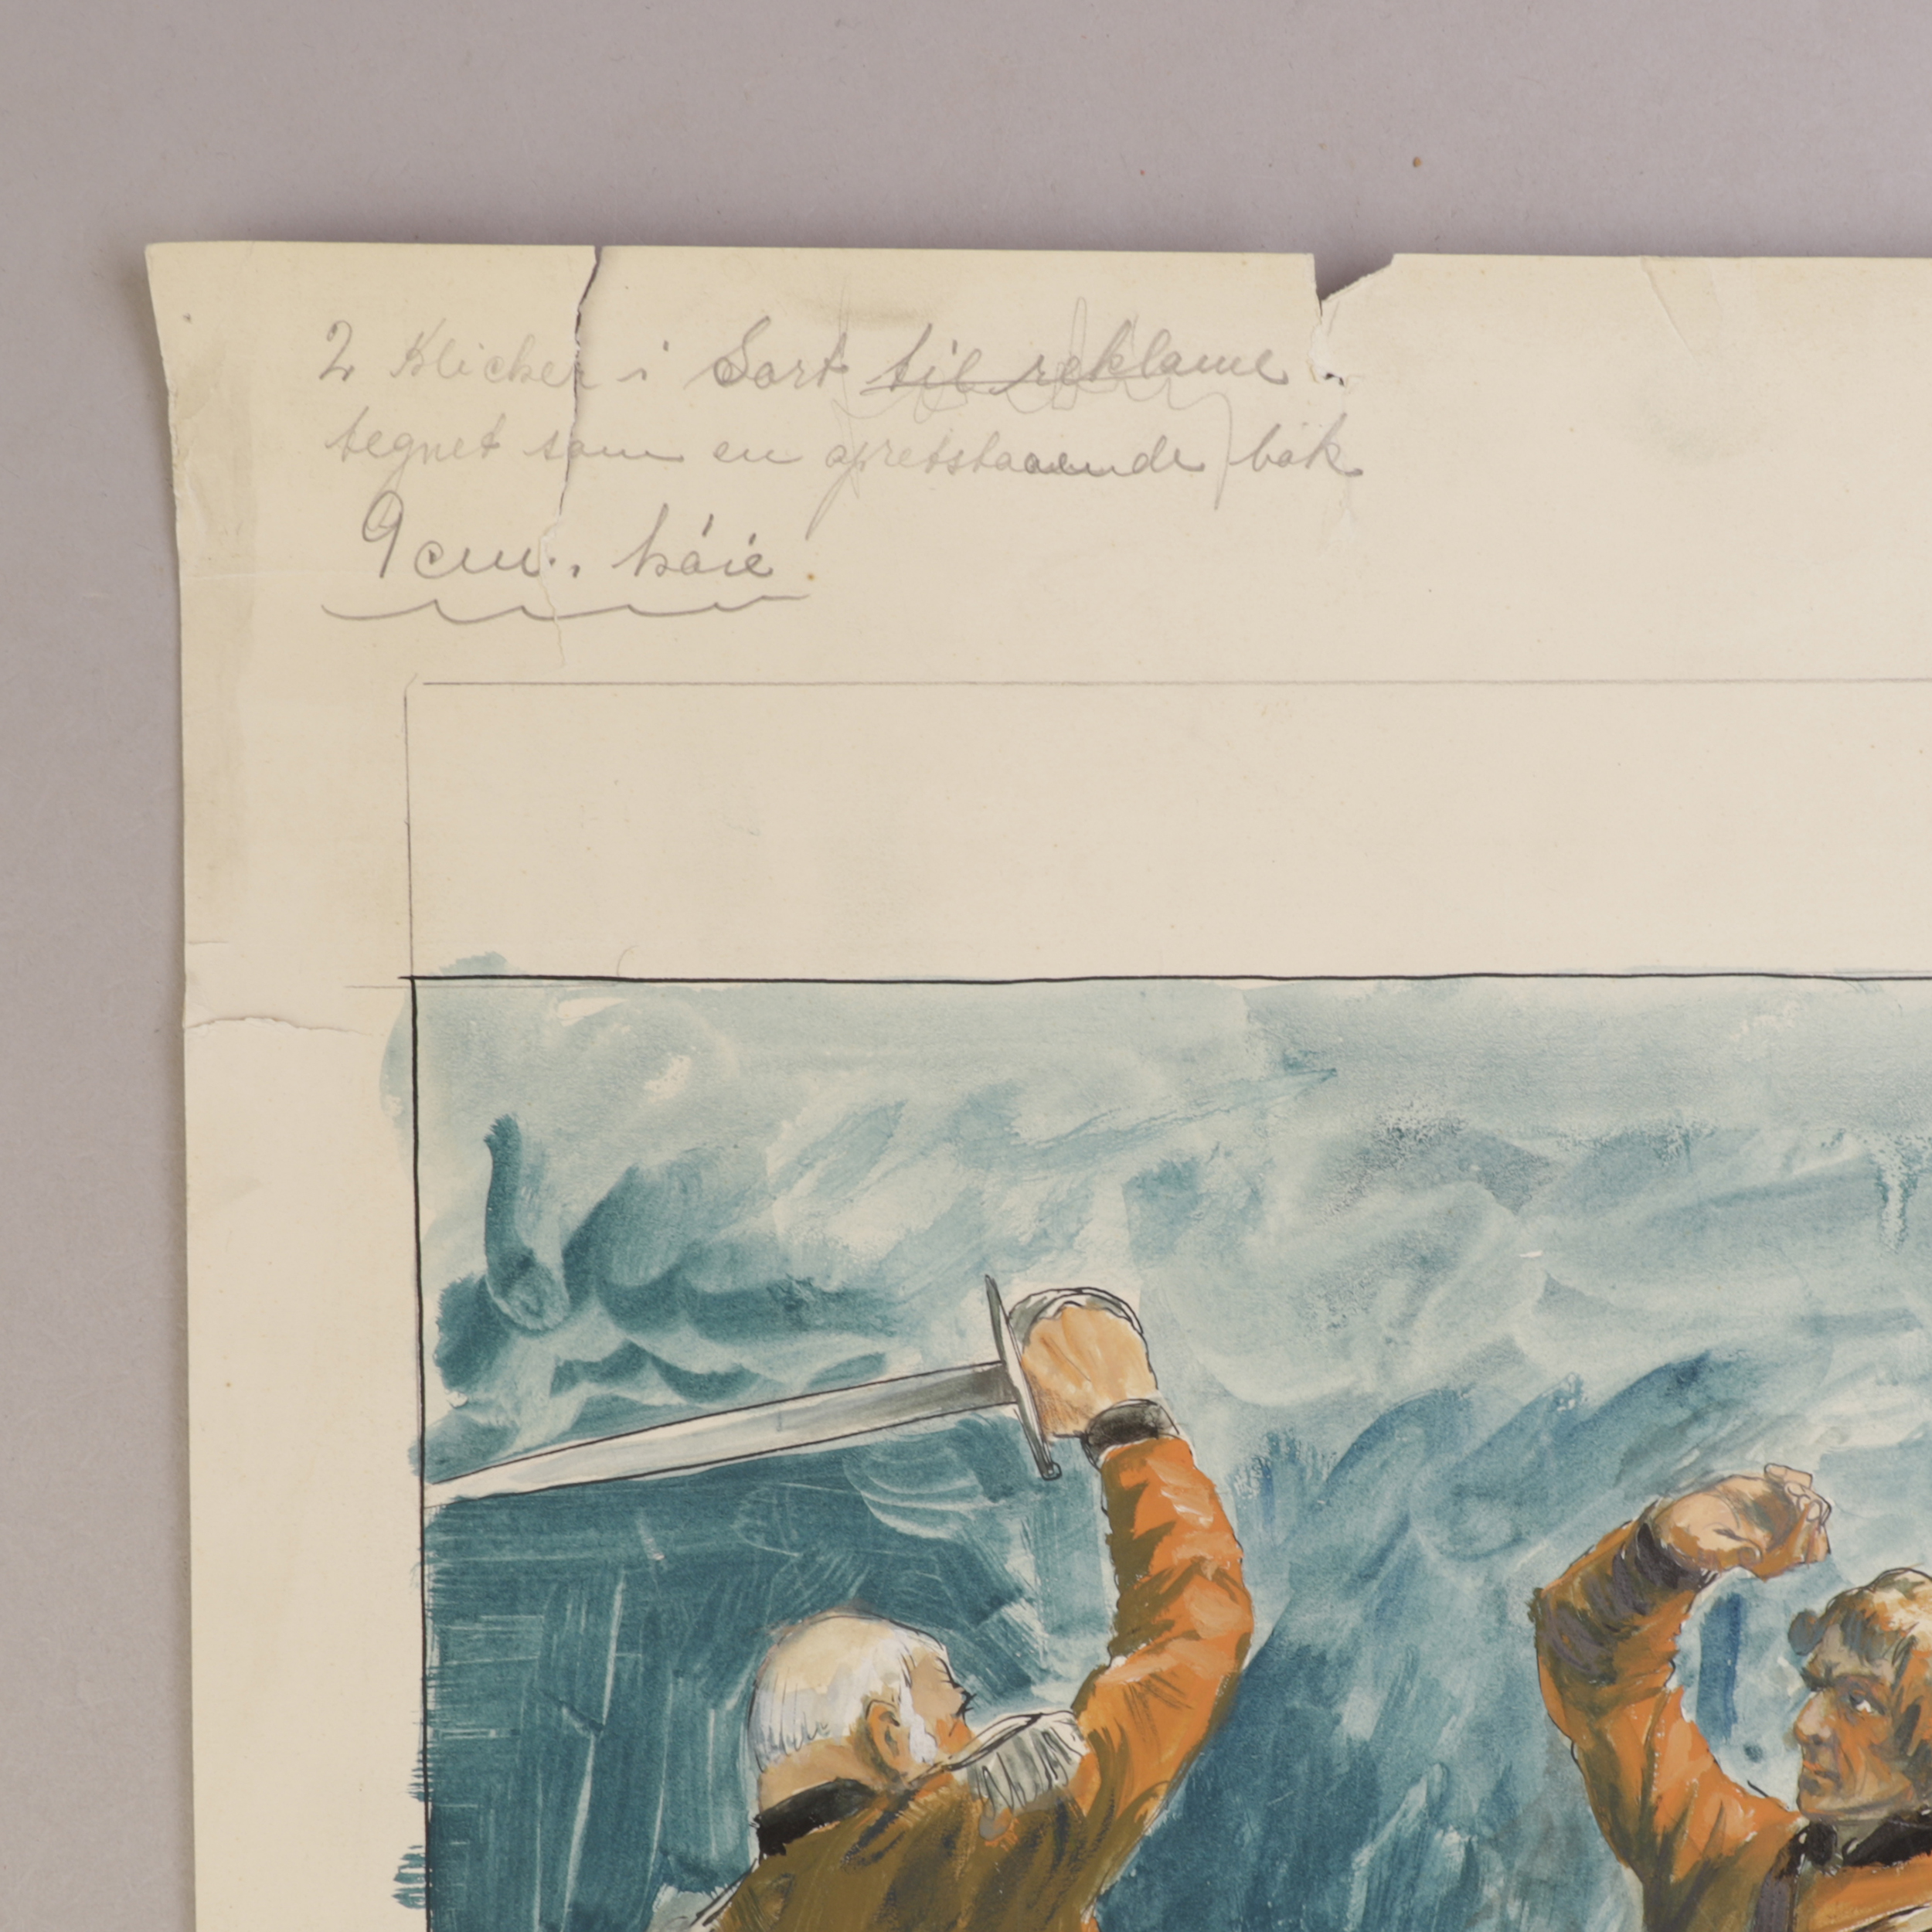 2 Klicher i Sort til reklame.
tegnet som en opretstaaende bok
9 cm. høie